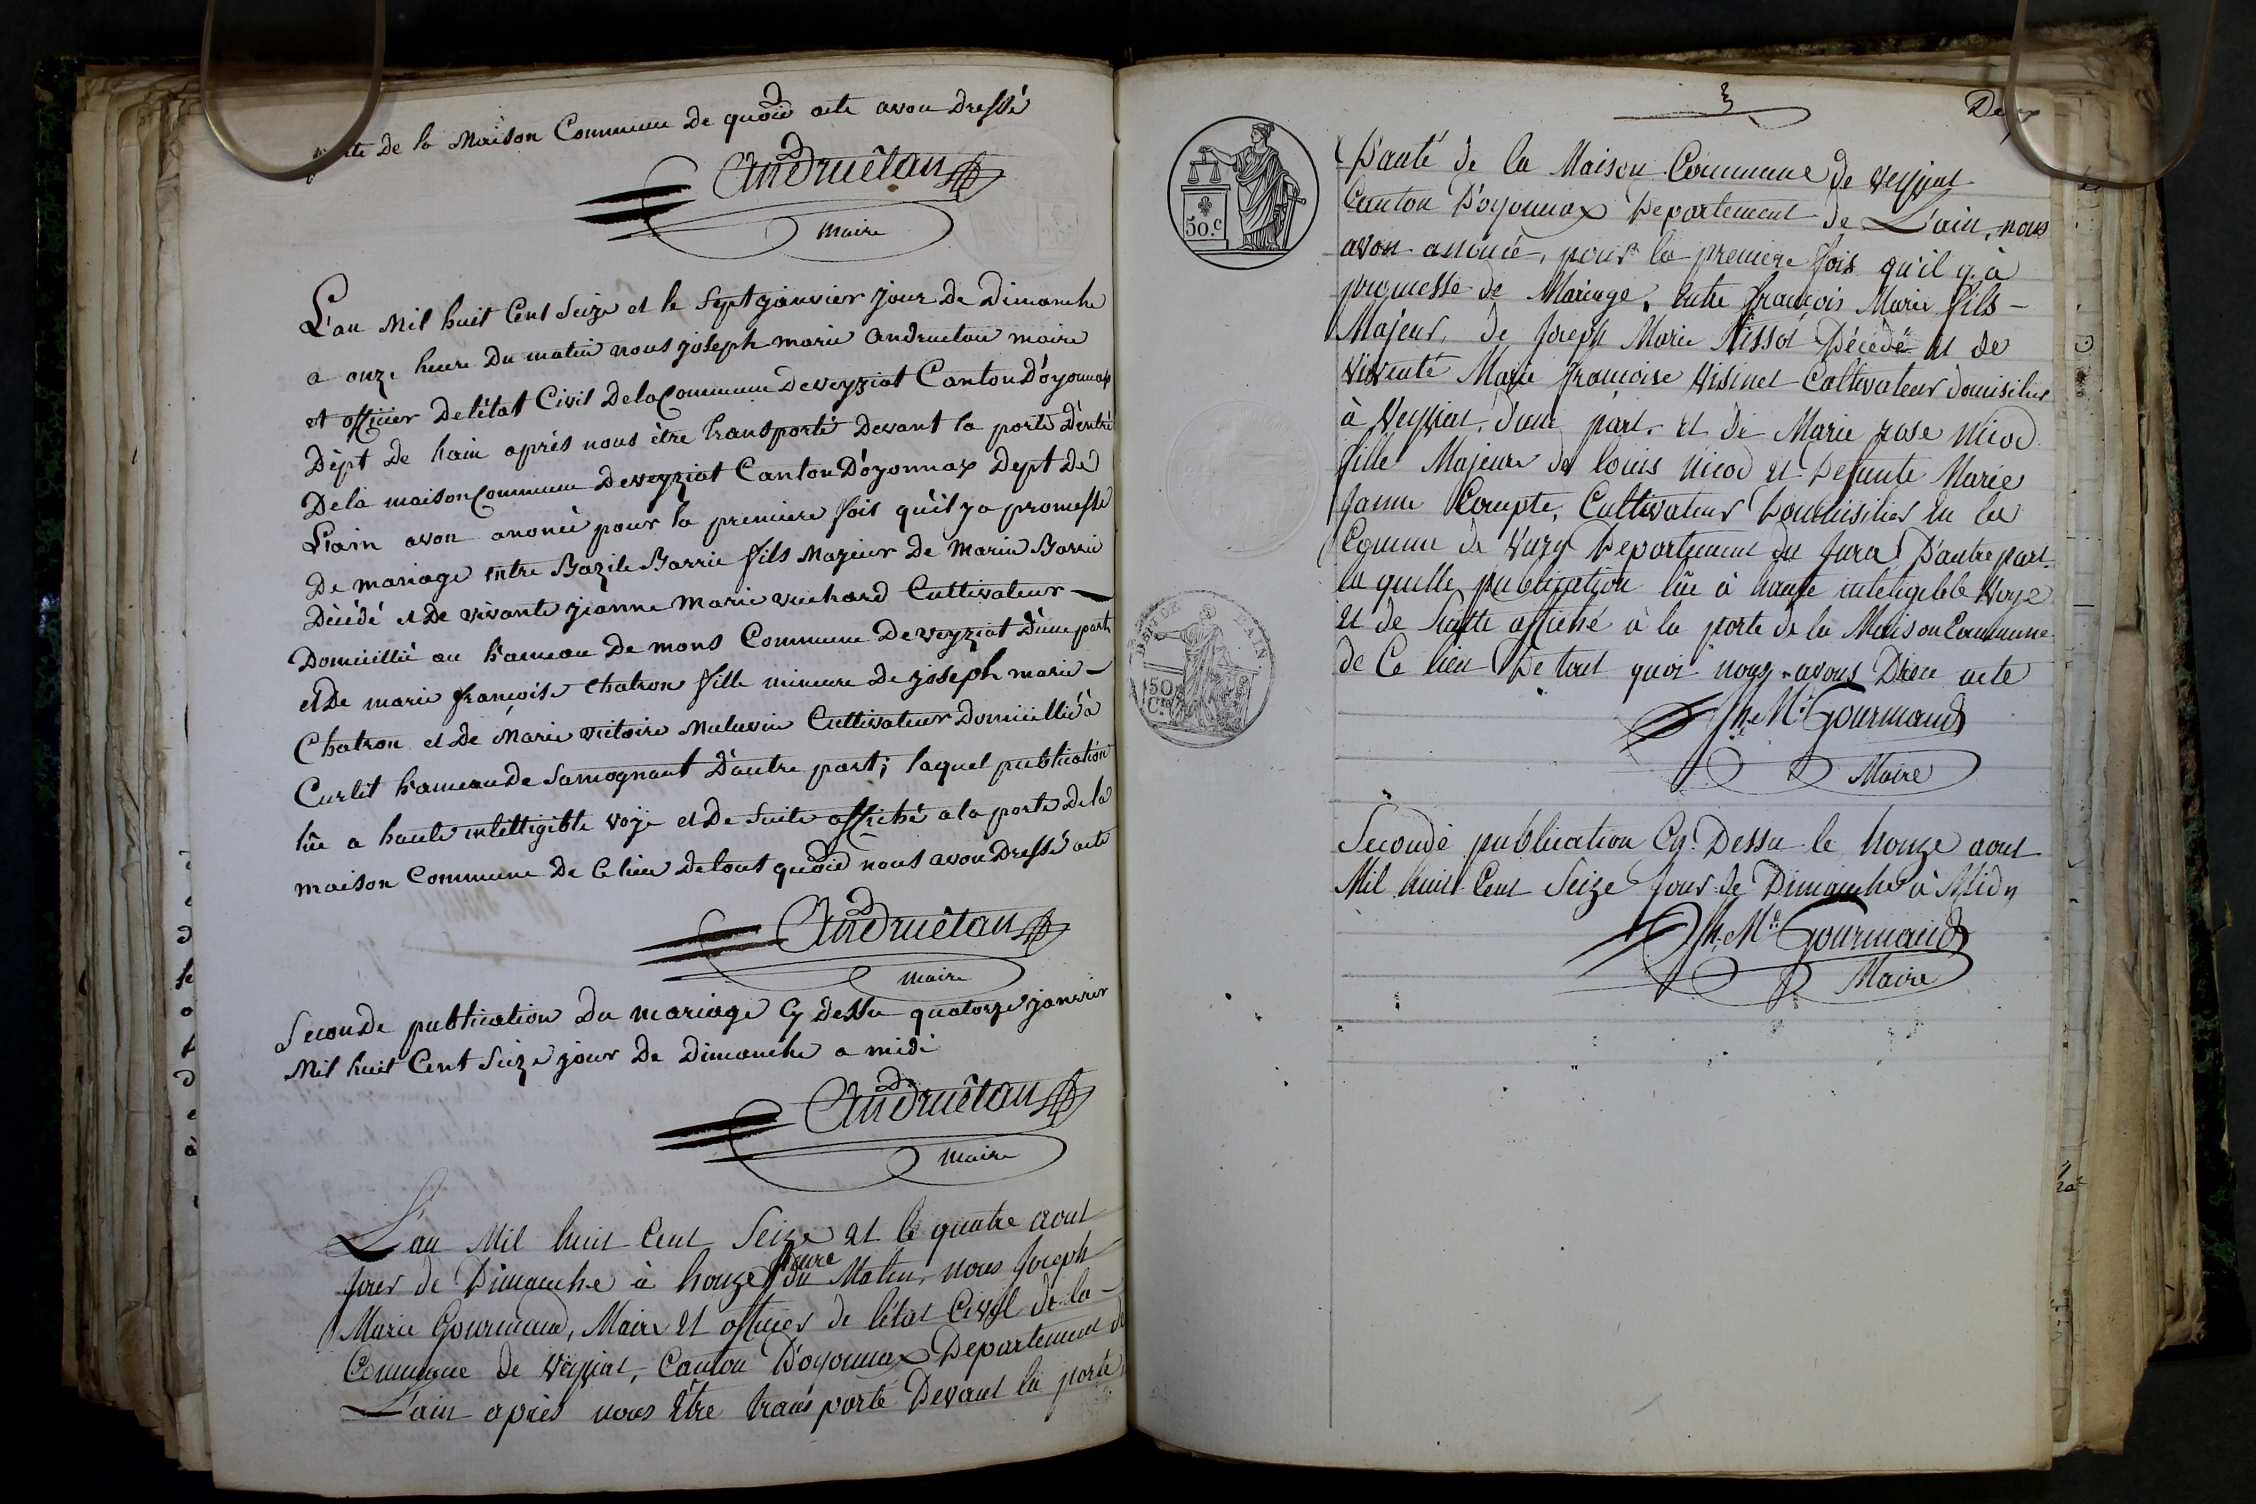 de la Maison Commune de quoid acte avon Dressé
Andruêtan
maire
L'an Mil huit Cent Seize et le Sept janvier jour de Dimanche
a onze heure Du matin nous joseph marie andruetan maire
et officier De létat Civil De la Commune De veyziat Canton D'oyonnax
Dépt de Lain aprés nous être transporté Devant la porte D'entré
De la maison Commune De veyziat Canton D'oyonnax Dept De
L'ain avon anoncé pour la premiere fois qu'il y a promesse
De mariage entre Bazile Barrie fils Majeur de Marin Barrie
Décédé et De vivante jeanne Marie vuchard Cultivateur
Domicillié au hameau De mons Commune De veyziat D'une part
et De marie françoise Chatron fille mineure de joseph marie
Chatron et De Marie victoire Maluvin Cultivateur Domicillié à
Curlit hameau de Samognant D'autre part; laquel publication
lûe a haute intelligible voye et De Suite affiché a la porte De la
maison Commune De Ce lieu De tout quoid nous avon Dressé acte
Andruêtan
maire
Seconde publication Du mariage Cy Dessu quatorze janvier
Mil huit Cent Seize jour De Dimanche a midi
Andruêtan
maire
L'an Mil huit Cent Seize et le quatre aout
jour de Dimanche à honze heure du Matin, nous Joseph
Marie Gourmand, Maire et officier de létat Civil de la
Commune de veyziat, Canton D'oyonnax Departement de
L'ain apriés nous Etre trans porté Devant la porte
3
D'anté de la Maison Commune de veyziat
Canton D'oyonnax Departement de L'ain, nous
50.c
avon anoncé, pour la premiere fois qu'il y à
promesse de Mariage, entre françois Marie fils
Majeur, de Joseph Marie Nissot Décédé et de
vivente Marie françoise Visinet Coltivateur domisilier
à Veyziat, d'une part, et de Marie rose Nicod
fille Majeure de louis Nicod et Defunte Marie
Janne Compte, Cultivateur Domisilier en la
Comune de Vuzy Departement du Jura D'autre part.
la quelle publication lûe à haute inteligible Voye
et de Suitte affiché à la porte de la Maison Commune
DEP.T DE L'AIN
50 C.
de Ce lieu De tout quoi nous avons Dréce acte
Jh. M.ie Gourmand
Maire
Seconde publication Cy Dessu le honze aout
Mil huit Cent Seize Jour de Dimanche à Midy
Jh. M.ie Gourmand
Maire